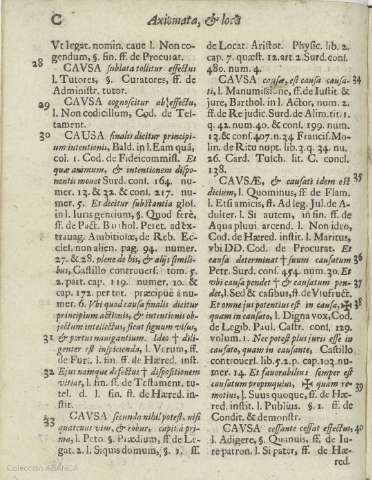 C Axiomata, & loca
Vt legat. nomin. caue l. Non co-
gendum, §. fin. ff. de Procurat.
28 CAVSA sublata tollitur effectus
l. Tutores, §. Curatores, ff. de
Administr. tutor.
29 CAVSA cognoscitur ab effectu,
l. Non codicillum, Cod. de Tes-
tament.
30 CAUSA finalis dicitur principi-
um intentionis, Bald. in l. Eam quā,
col. 1. Cod. de Fideicommiss. Et
quæ animum, & intentionem dispo-
nentis mouet Surd. cons. 164. nu-
mer. 13. & 32. & cons. 217. nu-
mer. 5. Et dicitur substantia glos.
in l. Iurisgentium, §. Quod ferè,
ff. de Pact. Barthol. Peret. ad ex-
trauag. Ambitiosæ, de Reb. Ec-
cles. non alien. pag. 94. numer.
27. & 28. plene de his, & alijs simili-
bus, Castillo controuers. tom. 5.
2. part. cap. 119. numer. 10. &
cap. 172. per tot. præcipuè à nu-
mer. 6. Vbi quod causa finalis dicitur
principium actionis, & intentionis ob-
jectum intellectus, sicut signum visus,
31 & portus nauigantium. Ideo † dili-
genter est inspicienda, l. Verum, ff.
de Furt. l. fin. ff. de Hæred. inst.
32 Ejus namque defectus † dispositionem
vitiat, l. fin. ff. de Testament. tu-
tel. d. l. fin. ff. de Hæred. in-
stit.
33 CAVSA secunda nihil potest, nisi
quatenus vim, & robur, capit à pri-
ma, l. Peto. §. Prædium, ff. de Le-
gat. 2. l. Si quis domum, §. 1. ff.
de Locat. Aristot. Physic. lib. 2.
cap. 7. quæst. 12. art. 2. Surd. cons.
480. num. 4.
CAVSA causæ, est causa causa- 34
ti, l. Manumissione, ff. de Iustit. &
jure, Barthol. in l. Actor, num. 2.
ff. de Re judic. Surd. de Alim. tit. 1.
q. 42. num. 40. & cons. 199. num.
13. & cons. 407. n. 34 Francis. Mo-
lin. de Ritu nupt. lib. 3. q. 34. nu.
26. Card. Tusch. lit. C. concl.
128.
CAVSÆ, & causati idem est 35
dicium, l. Quominus, ff. de Flum.
l. Etsi amicis, ff. Ad leg. Jul. de A-
dulter. l. Si autem, in fin. ff. de
Aqua pluvi. arcend. l. Non ideo,
Cod. de Hæred. instit. l. Maritus,
Ybi DD. Cod. de Procurat. Et
causa determinat † suum causatum 36
Petr. Surd. cons. 454. num. 30. Et
vbi causa pendet † & causatum pen- 37
det, l. Sed & casibus, ff. de Vsufruct.
Et omne jus potentius est in causa, ✠ 38
quam in causato, l. Digna vox, Cod.
de Legib. Paul. Castr. cons. 129.
volum. 1. Nec potest plus juris esse in
causato, quam in causante, Castillo
controuers. lib. 5. 2. p. cap. 102. nu-
mer. 14. Et fauorabilius semper est
causatum propinquius, ✠ quam re- 39
motius, l. Suus quoque, ff. de Hæ-
red. instit. l. Publius. §. 2. ff. de
Condit. & demonstr.
CAVSA cessante cessat effectus, 40
l. Adigere, §. Quamuis, ff. de Iu-
re patron. l. Si pater, ff. de Hæ-
red.
Colección ABANCA